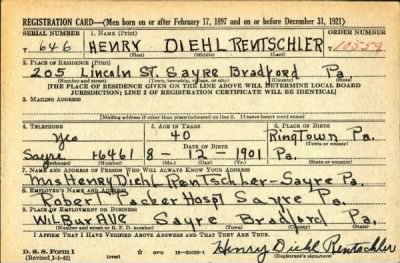 REGISTRATION CARD—(Men born on or after February 17, 1897 and on or before December 31, 1921)
SERIAL NUMBER 1. NAME (Print) ORDER NUMBER
T 646 HENRY DIEHL RENTSCHLER T10559
(First) (Middle) (Last)
2. PLACE OF RESIDENCE (Print)
205 Lincoln St. Sayre Bradford Pa.
(Number and street) (Town, township, village, or city) (County) (State)
[THE PLACE OF RESIDENCE GIVEN ON THE LINE ABOVE WILL DETERMINE LOCAL BOARD
JURISDICTION; LINE 2 OF REGISTRATION CERTIFICATE WILL BE IDENTICAL]
3. MAILING ADDRESS
(Mailing address if other than place indicated on line 2. If same insert word same)
4. TELEPHONE 5. AGE IN YEARS 6. PLACE OF BIRTH
Yes 40 Ringtown Pa.
DATE OF BIRTH (Town or county)
Sayre 16461 8-12-1901 Pa.
(Exchange) (Number) (Mo.) (Day) (Yr.) (State or country)
7. NAME AND ADDRESS OF PERSON WHO WILL ALWAYS KNOW YOUR ADDRESS
Mrs Henry Diehl Rentschler-Sayre Pa.
8. EMPLOYER'S NAME AND ADDRESS
Robert Packer Hospt Sayre Pa
9. PLACE OF EMPLOYMENT OR BUSINESS
Wilbur Ave Sayre Bradford Pa.
(Number and street or R. F. D. number) (Town) (County) (State)
I AFFIRM THAT I HAVE VERIFIED ABOVE ANSWERS AND THAT THEY ARE TRUE.
D. S. S. Form 1 Henry Diehl Rentschler
(Revised 1-1-42) (over) (Registrant's signature)